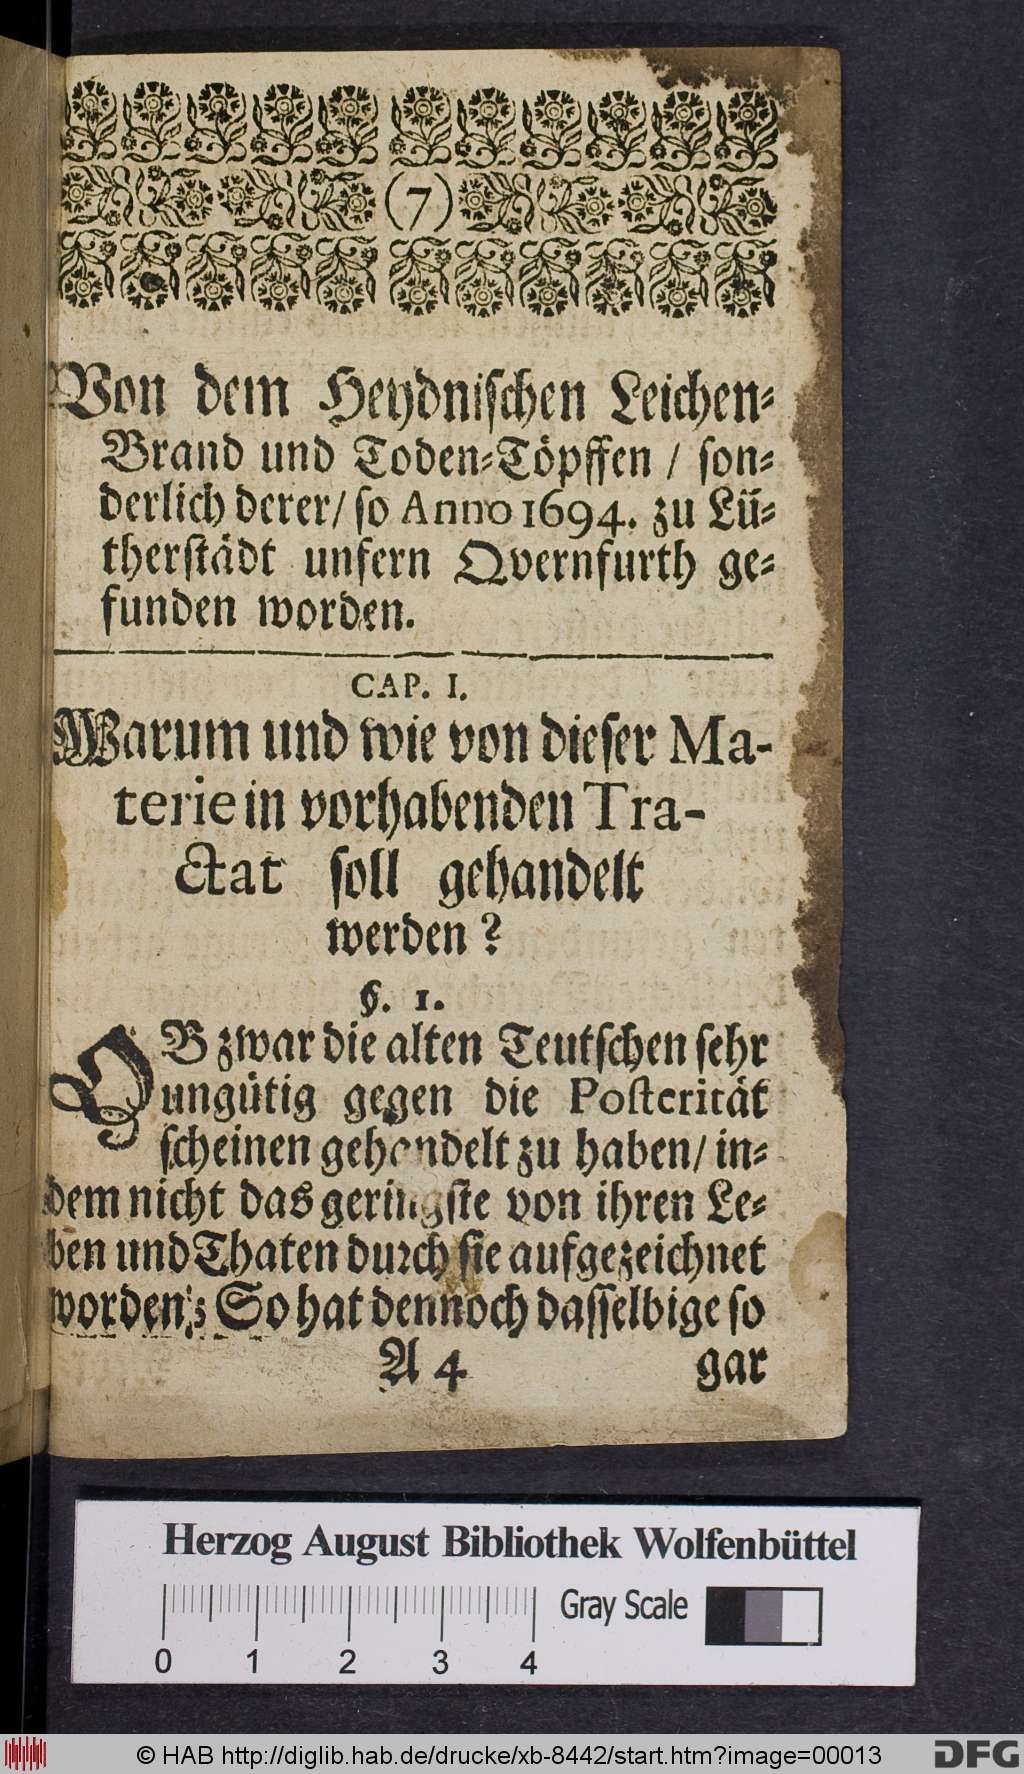 (7)
Von dem Heydnischen Leichen-
Brand und Toden-Töpffen / son-
derlich derer/ so Anno 1694. zu Lü-
therstädt unfern Qvernfurth ge-
funden worden.
CAP. I.
Warum und wie von dieser Ma-
terie in vorhabenden Tra-
ctat soll gehandelt
werden?
§. 1.
OB zwar die alten Teutschen sehr
ungütig gegen die Posterität
scheinen gehandelt zu haben/ in-
dem nicht das geringste von ihren Le-
ben und Thaten durch sie aufgezeichnet
worden; So hat dennoch dasselbige so
A 4 gar
Herzog August Bibliothek Wolfenbüttel
Gray Scale
0 1 2 3 4
© HAB http://diglib.hab.de/drucke/xb-8442/start.htm?image=00013
DFG